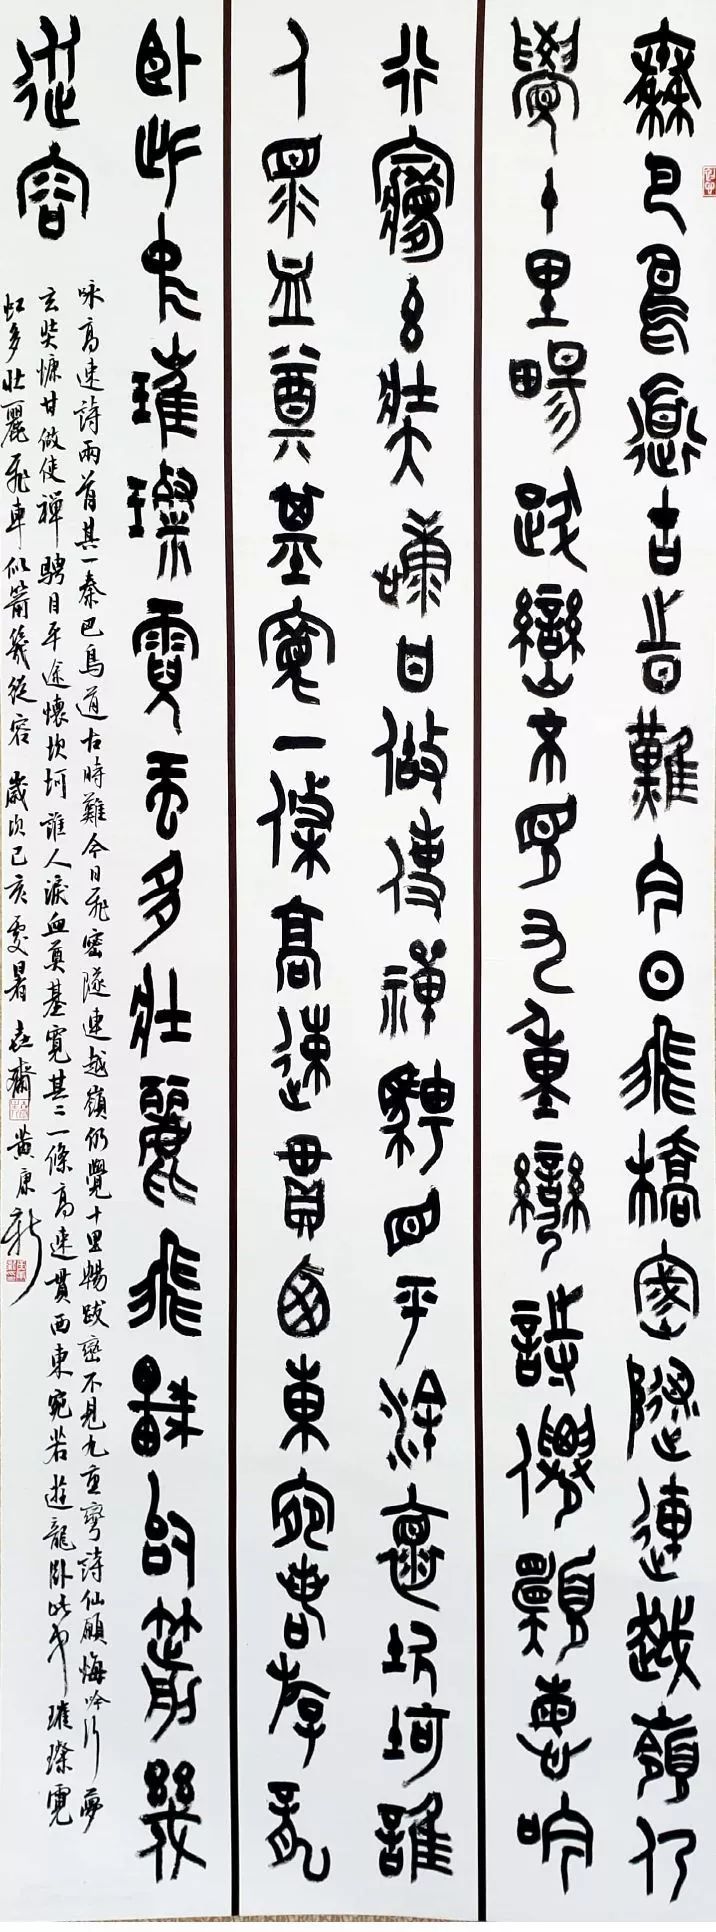 秦巴鳥道古時難今日飛橋密隧連越嶺仍
覺十里暢跋巒不見九重彎詩僊願悔吟
行夢玄奘慷甘做使禪騁目平途懷坎坷誰
人淚血奠基寬一條高速貫西東宛若游龍
臥此中璀璨霓虹多壯麗飛車似箭幾
從容
咏高速詩兩首其一秦巴鳥道古時難今日飛密隧連越嶺仍覺十里暢跋巒不見九重彎詩仙願悔吟行夢
玄奘慷甘做使禪騁目平途懷坎坷誰人淚血奠基寬其二一條高速貫西東宛若遊龍臥此中璀璨霓
虹多壯麗飛車似箭幾從容歲次己亥處暑齋黃康新